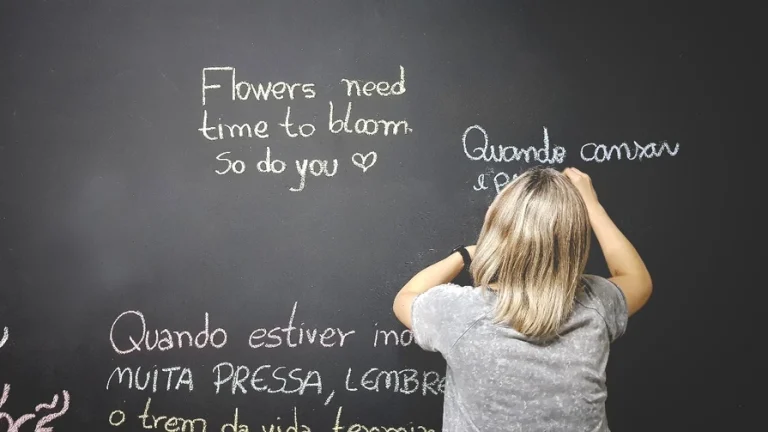 Flowers need
time to bloom.
So do you ♡
Quando cansar
Quando estiver
MUITA PRESSA,
o trem da vida